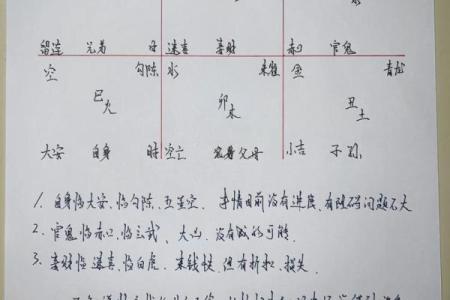 留连 兄弟 日 速喜 妻财 赤口 官鬼
空 勾陈 水 朱雀 金 青龙
巳 卯 丑
火 木 土
大安 自身 时 空亡 父母 小吉 子孙
1. 自身临大安、临勾陈、五星空、事情目前没有进展,有阻碍问题不大
2. 官鬼临赤口、临玄武、大凶、没有成的可能.
3. 妻财临速喜、临白虎、来钱快、但有折扣、损失.